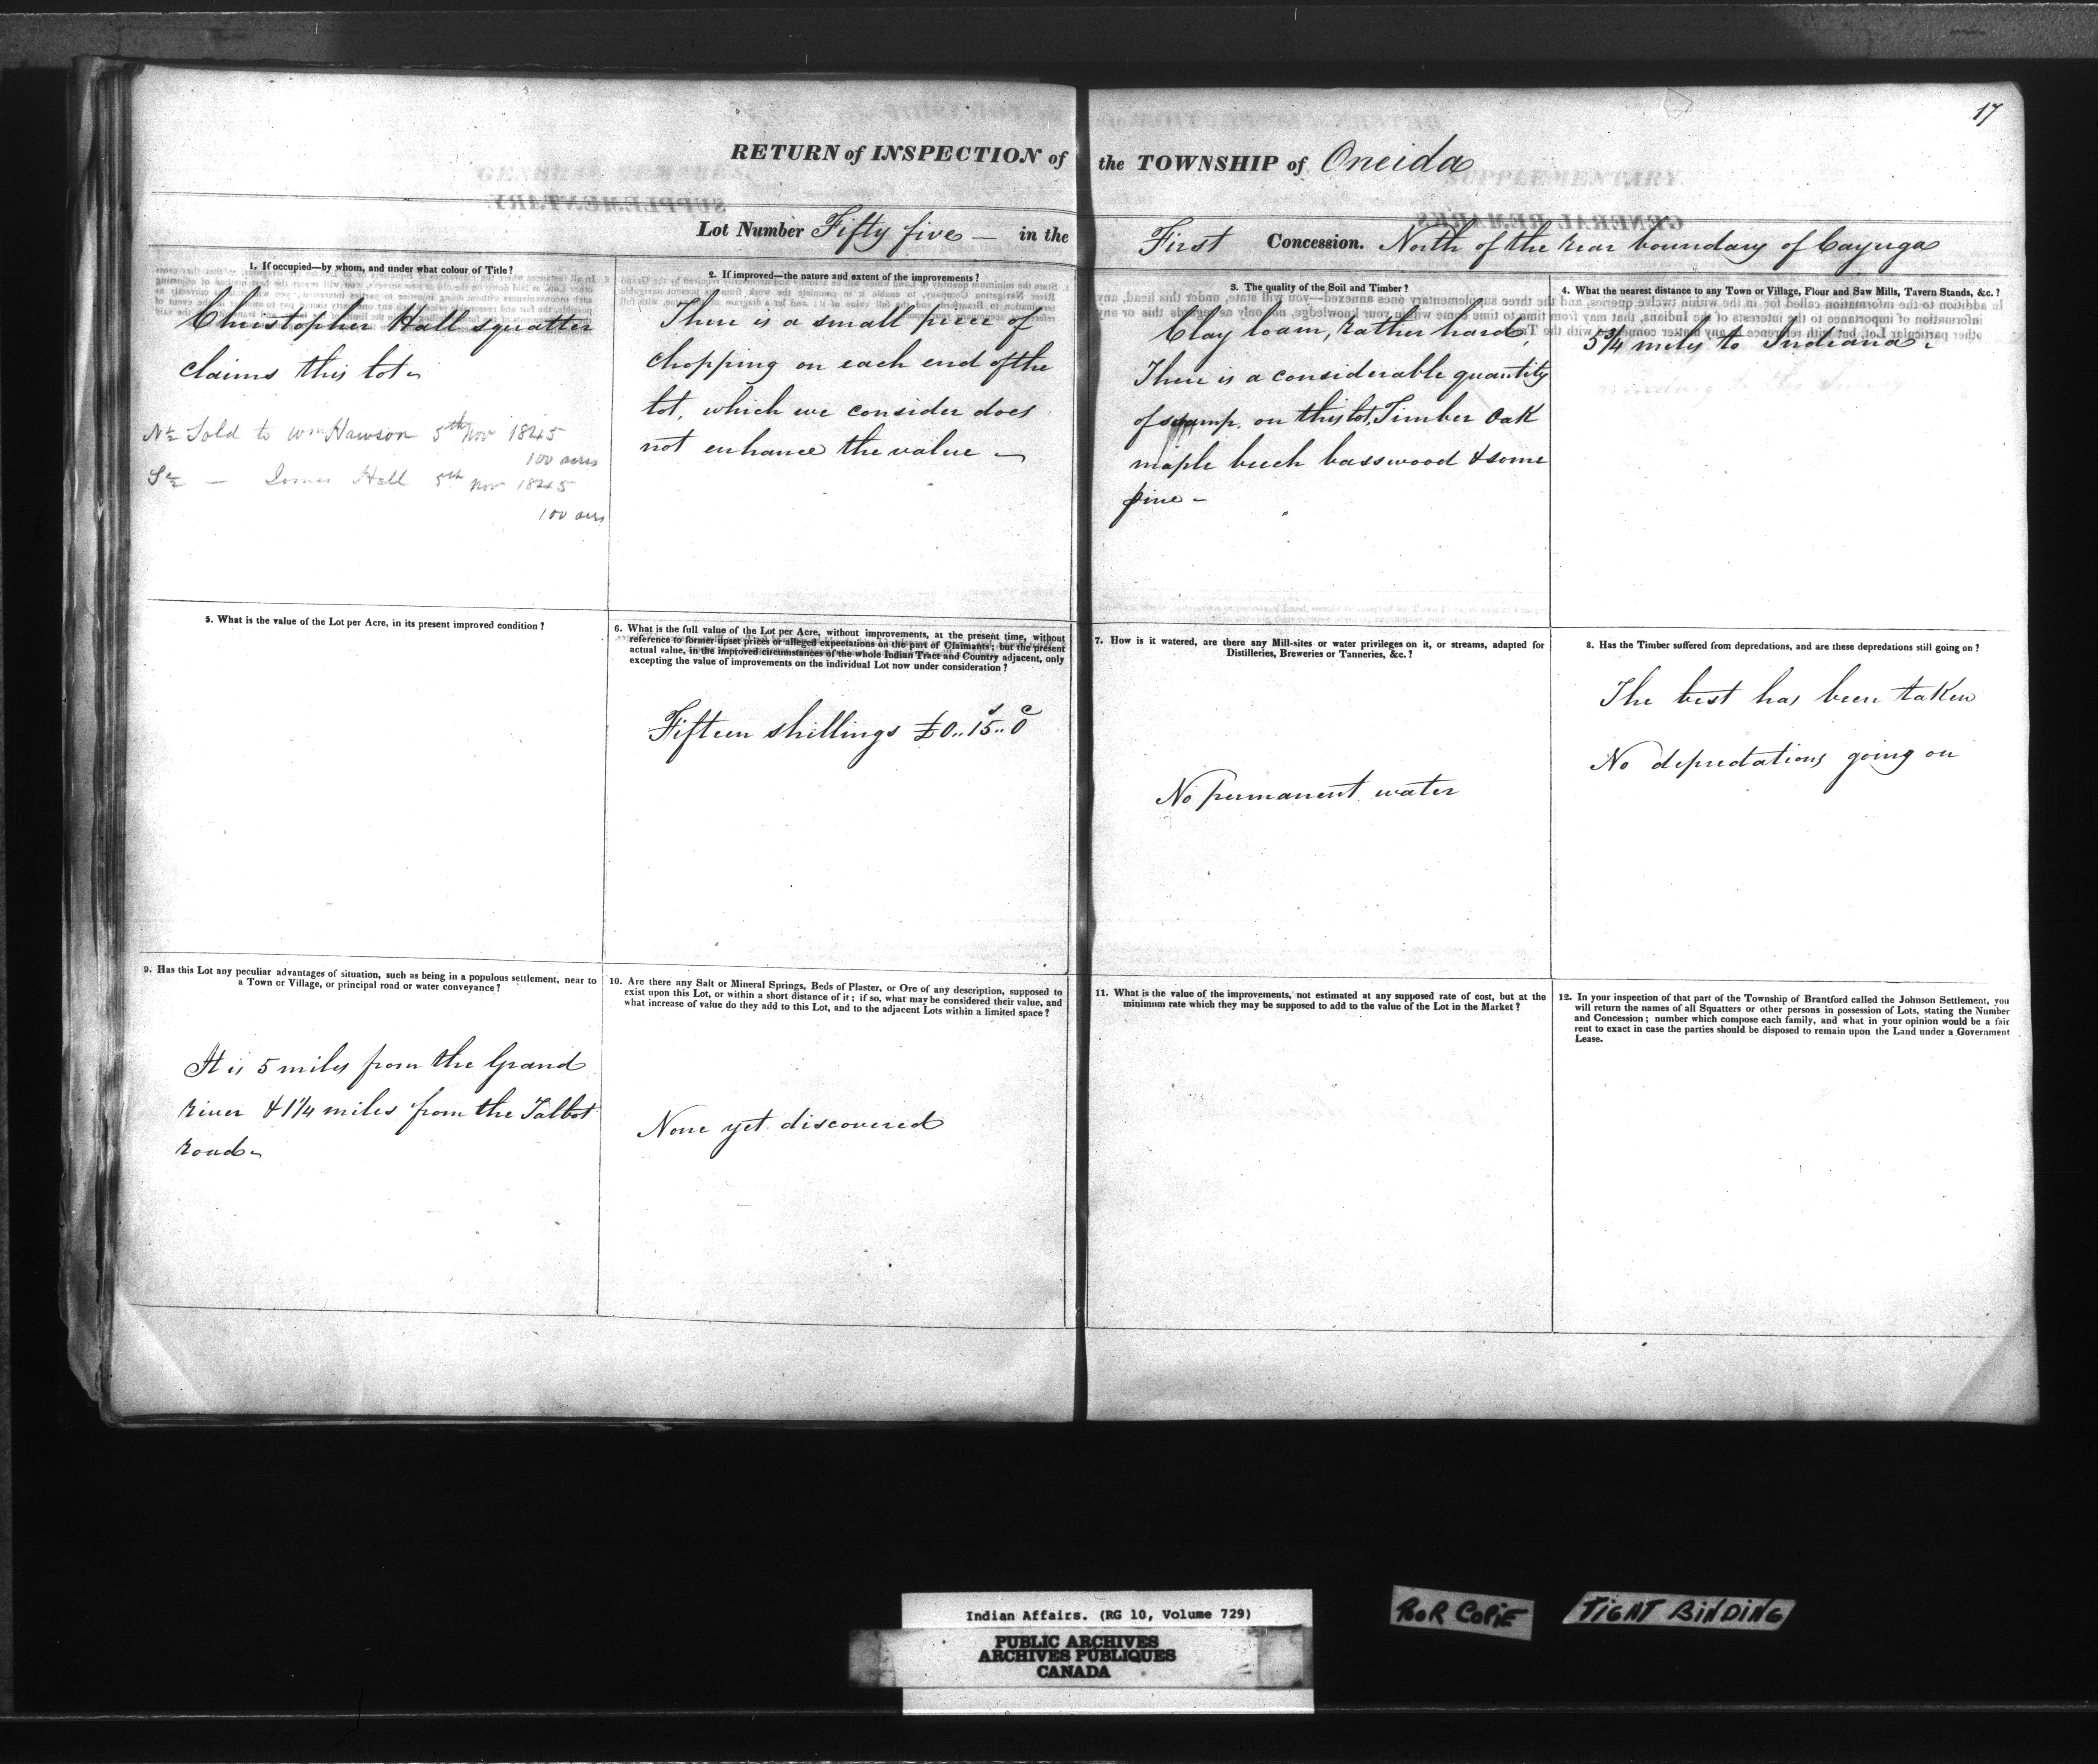 17
RETURN of INSPECTION of the TOWNSHIP of Oneida
Lot Number Fifty five — in the First Concession. North of the rear boundary of Cayuga
1. If occupied—by whom, and under what colour of Title?
Christopher Hall squatter
claims this lot
N½ Sold to Wm Hawson 5th Nov 1845
100 acres
S½ — Hall 5th Nov 1845
100 acres
2. If improved—the nature and extent of the improvements?
There is a small piece of
chopping on each end of the
lot, which we consider does
not enhance the value —
3. The quality of the Soil and Timber?
Clay loam, rather hard,
There is a considerable quantity
of swamp. on this lot, Timber Oak
maple beech basswood & some
pine –
4. What the nearest distance to any Town or Village, Flour and Saw Mills, Tavern Stands, &c.?
5¾ miles to Indiana
5. What is the value of the Lot per Acre, in its present improved condition?
6. What is the full value of the Lot per Acre, without improvements, at the present time, without
reference to former upset prices or alleged expectations on the part of Claimants; but the present
actual value, in the improved circumstances of the whole Indian Tract and Country adjacent, only
excepting the value of improvements on the individual Lot now under consideration?
Fifteen shillings £0..15..0
7. How is it watered, are there any Mill-sites or water privileges on it, or streams, adapted for
Distilleries, Breweries or Tanneries, &c.?
No permanent water
8. Has the Timber suffered from depredations, and are these depredations still going on?
The best has been taken
No depredations going on
9. Has this Lot any peculiar advantages of situation, such as being in a populous settlement, near to
a Town or Village, or principal road or water conveyance?
It is 5 miles from the Grand
river & 1¼ miles from the Talbot
road
10. Are there any Salt or Mineral Springs, Beds of Plaster, or Ore of any description, supposed to
exist upon this Lot, or within a short distance of it; if so, what may be considered their value, and
what increase of value do they add to this Lot, and to the adjacent Lots within a limited space?
None yet discovered
11. What is the value of the improvements, not estimated at any supposed rate of cost, but at the
minimum rate which they may be supposed to add to the value of the Lot in the Market?
12. In your inspection of that part of the Township of Brantford called the Johnson Settlement, you
will return the names of all Squatters or other persons in possession of Lots, stating the Number
and Concession; number which compose each family, and what in your opinion would be a fair
rent to exact in case the parties should be disposed to remain upon the Land under a Government
Lease.
Indian Affairs. (RG 10, Volume 729)
PUBLIC ARCHIVES
ARCHIVES PUBLIQUES
CANADA
POOR COPIE
TIGHT BINDING